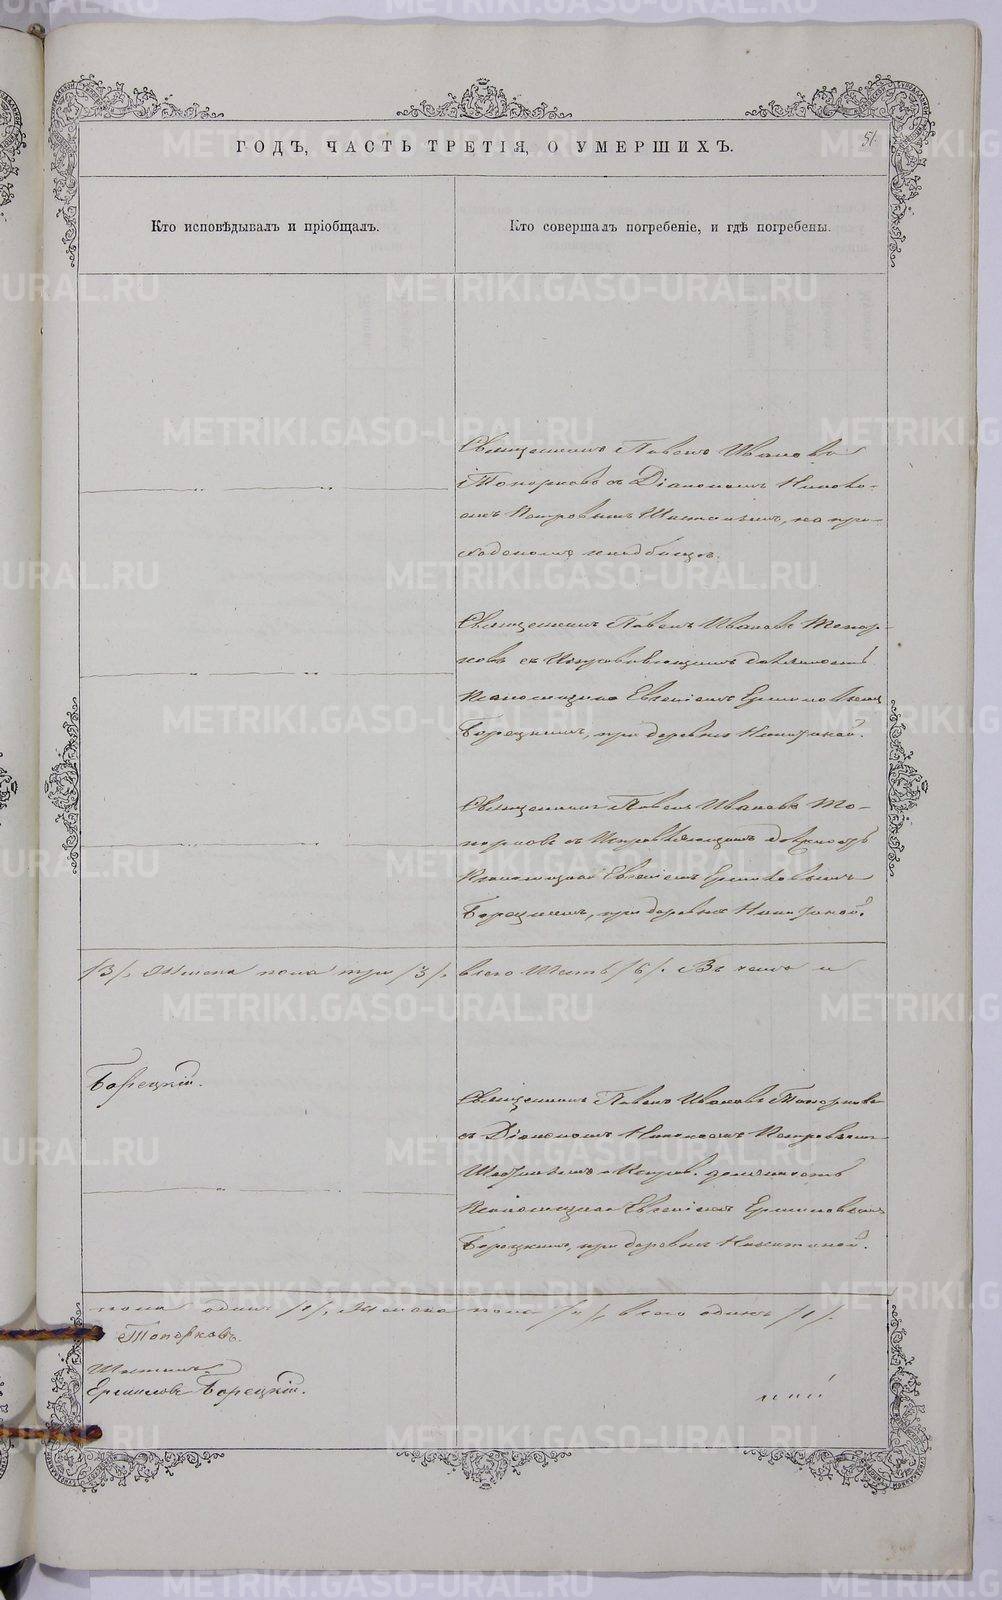 51.
ГОДЪ, ЧАСТЬ ТРЕТІЯ, О УМЕРШИХЪ.
Кто исповѣдывалъ и пріобщалъ.
Кто совершалъ погребеніе, и гдѣ погребены.
Священникъ Павелъ Ивановъ
Топорковъ съ Діакономъ Никола-
емъ Петровымъ на при-
ходскомъ кладбищѣ.
Священникъ Павелъ Ивановъ Топор-
ковъ съ Исправляющимъ должность
Псаломщика Евгеніемъ Ермиловымъ
Борецкимъ, при деревнѣ Никитиной.
Священникъ Павелъ Ивановъ То-
порковъ съ Исправляющимъ должность
Псаломщика Евгеніемъ Ермиловымъ
Борецкимъ, при деревнѣ Никитиной.
/3/, Женска пола три /3/, всего шесть /6/. Въ томъ и
Борецкій.
Священникъ Павелъ Ивановъ Топорковъ
съ Діакономъ Николаемъ Петровымъ
и Исправ. должность
Псаломщика Евгеніемъ Ермиловымъ
Борецкимъ, при деревнѣ Никитиной.
пола одинъ /1/, Женска пола /"/, всего одинъ /1/.
Топорковъ.
Ермиловъ Борецкій.
METRIKI.GASO-URAL.RU